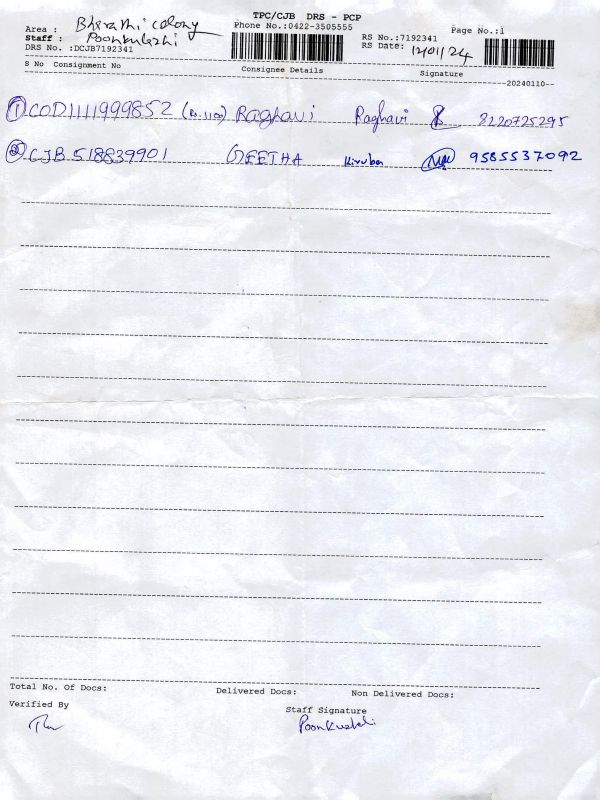 TPC/CJB DRS - PCP
Area : Bharathi colony Phone No.:0422-3505555 Page No.:1
Staff : Poonkuzhi RS No.:7192341
DRS No. :DCJB7192341 RS Date: 12/01/24
S No Consignment No Consignee Details Signature
20240110
1 COD1111999852 (Rs.1150) Raghavi Raghavi 8220725295
2 CJB 518839901 GEETHA Kiruban 9585537092
Total No. Of Docs: Delivered Docs: Non Delivered Docs:
Verified By Staff Signature
Poonkuzhali